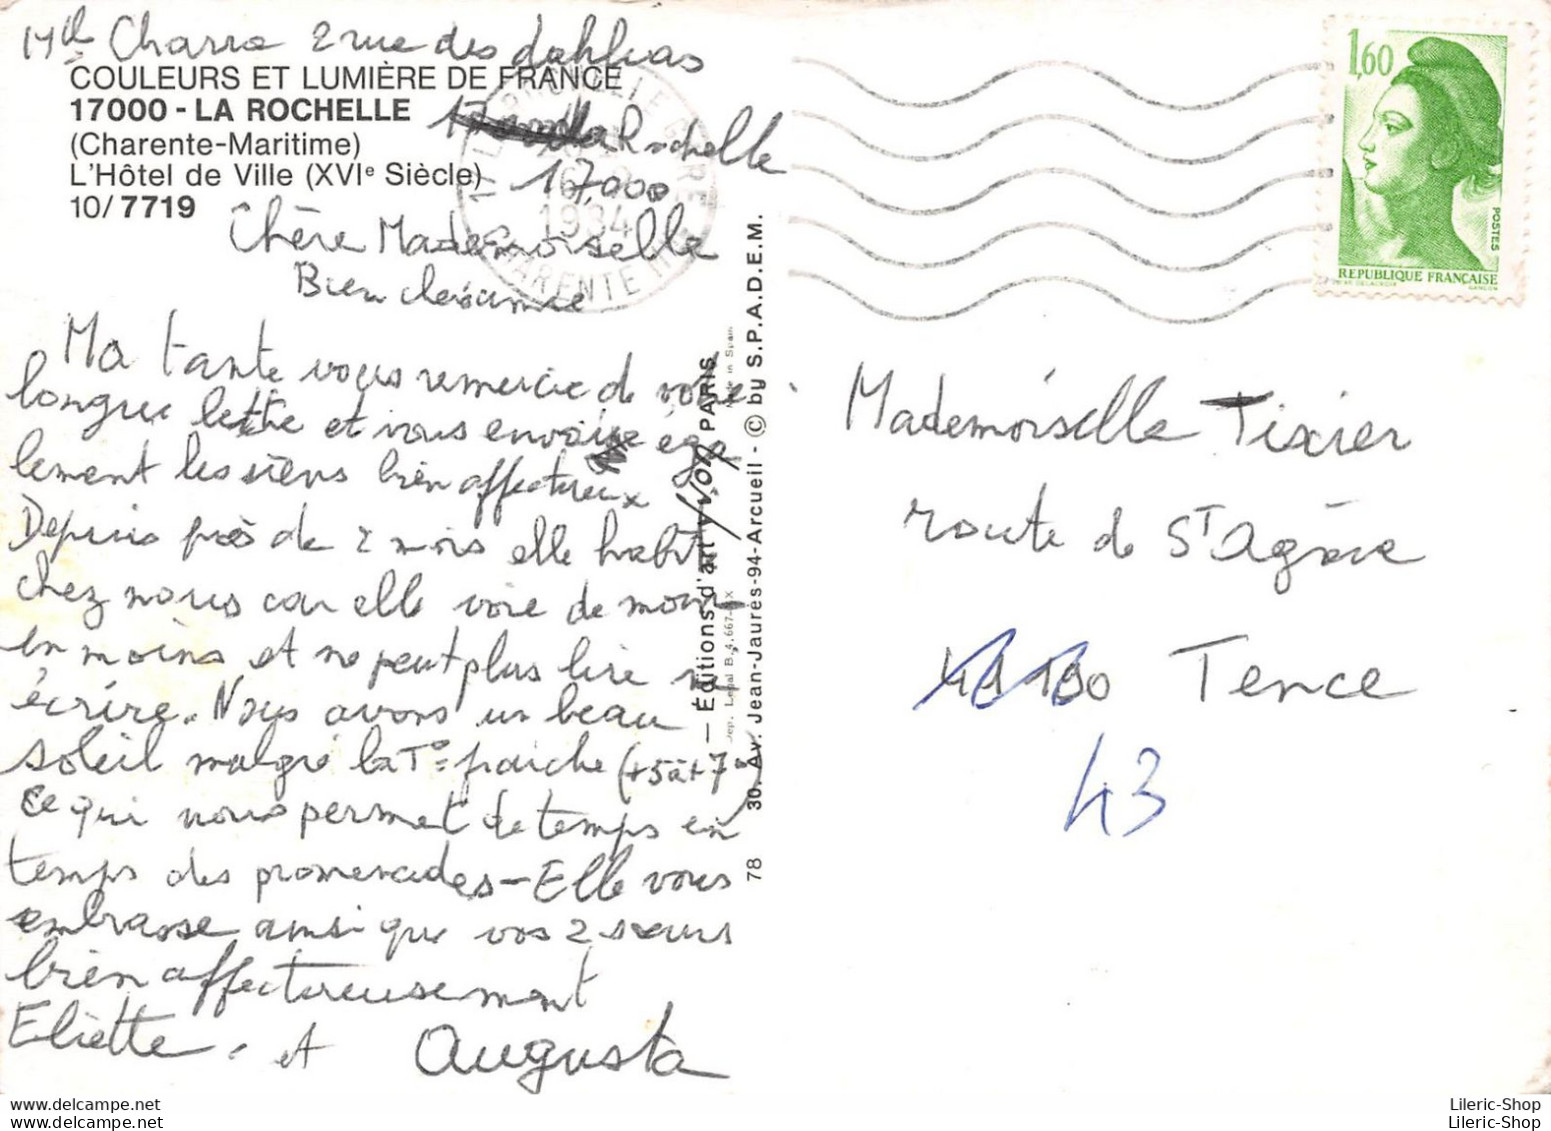 Mlle Charra 2 rue des dahlias
COULEURS ET LUMIÈRE DE FRANCE
17000 - LA ROCHELLE
la Rochelle
(Charente-Maritime)
17,000
L'Hôtel de Ville (XVIe Siècle)
10/7719
1984
Chère Mademoiselle
Bien chère amie
Ma tante vous remercie de votre
longue lettre et vous envoie éga
lement les siens bien affectueux
Depuis près de 2 mois elle habite
chez nous car elle voie de moins
en moins et ne peut plus lire ni
écrire. Nous avons un beau
soleil malgré la T° fraiche (+5 à +7°)
ce qui nous permet de temps en
temps des promenades - Elle vous
embrasse ainsi que vos 2 sœurs
bien affectueusement
Eliette. et Augusta
— Éditions d'art YVON PARIS
Dép. Légal B. 4.667-XX
Made in Spain
30. Av. Jean-Jaurès-94-Arcueil - © by S.P.A.D.E.M.
78
1,60
POSTES
REPUBLIQUE FRANÇAISE
GANDON
Mademoiselle Tixier
route de St Agrève
Tence
43
Lileric-Shop
Lileric-Shop
Lileric-Shop
Lileric-Shop